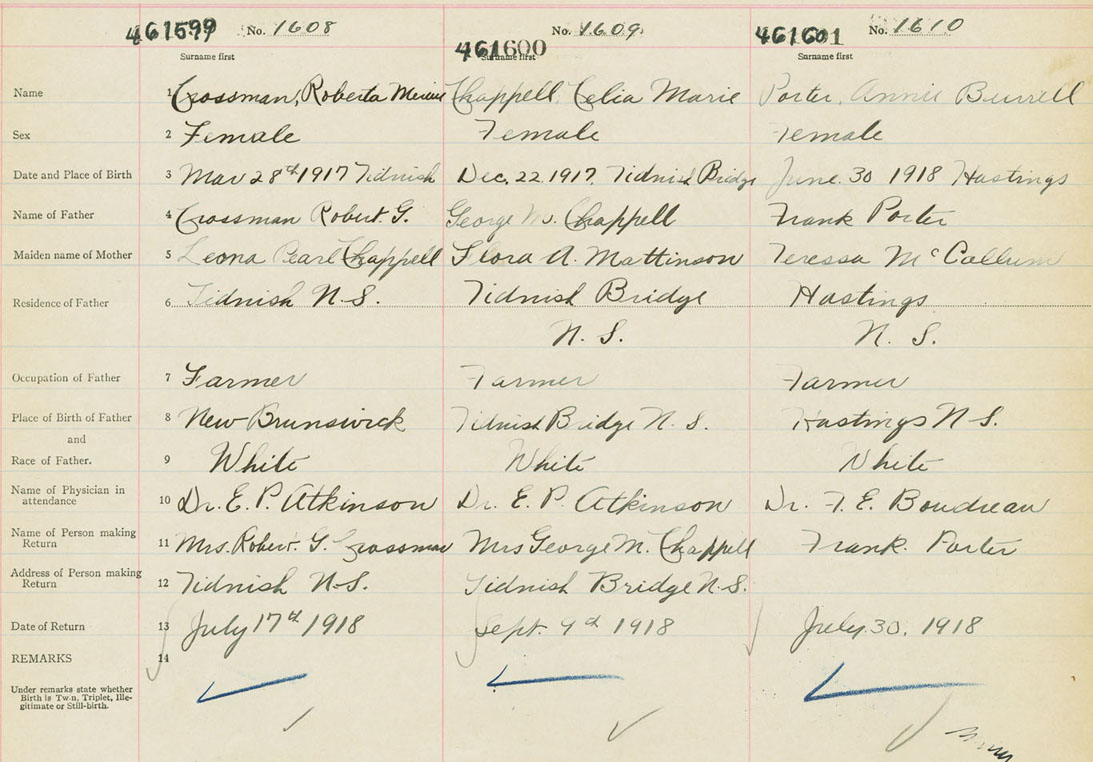 461599 No. 1608 461600 No. 1609 461601 No. 1610
Surname first Surname first Surname first
Name 1 Crossman, Roberta Chappell, Celia Marie Porter, Annie Burrell
Sex 2 Female Female Female
Date and Place of Birth 3 Mar 28th 1917 Tidnish Dec. 22 1917. Tidnish Bridge June 30 1918 Hastings
Name of Father 4 Crossman Robert G. George M. Chappell Frank Porter
Maiden name of Mother 5 Leona Pearl Chappell Flora A. Mattinson Teressa McCallum
Residence of Father 6 Tidnish N.S. Tidnish Bridge Hastings
N. S. N. S.
Occupation of Father 7 Farmer Farmer Farmer
Place of Birth of Father 8 New Brunswick Tidnish Bridge N. S. Hastings N.S.
and
Race of Father. 9 White White White
Name of Physician in
attendance 10 Dr. E. P. Atkinson Dr. E. P. Atkinson Dr. F. E. Boudreau
Name of Person making
Return 11 Mrs. Robert. G. Crossman Mrs George M. Chappell Frank. Porter
Address of Person making
Return 12 Tidnish N.S. Tidnish Bridge N.S.
Date of Return 13 July 17th 1918 Sept. 4th 1918 July 30, 1918
REMARKS 14
Under remarks state whether
Birth is Twin, Triplet, Ille-
gitimate or Still-birth.